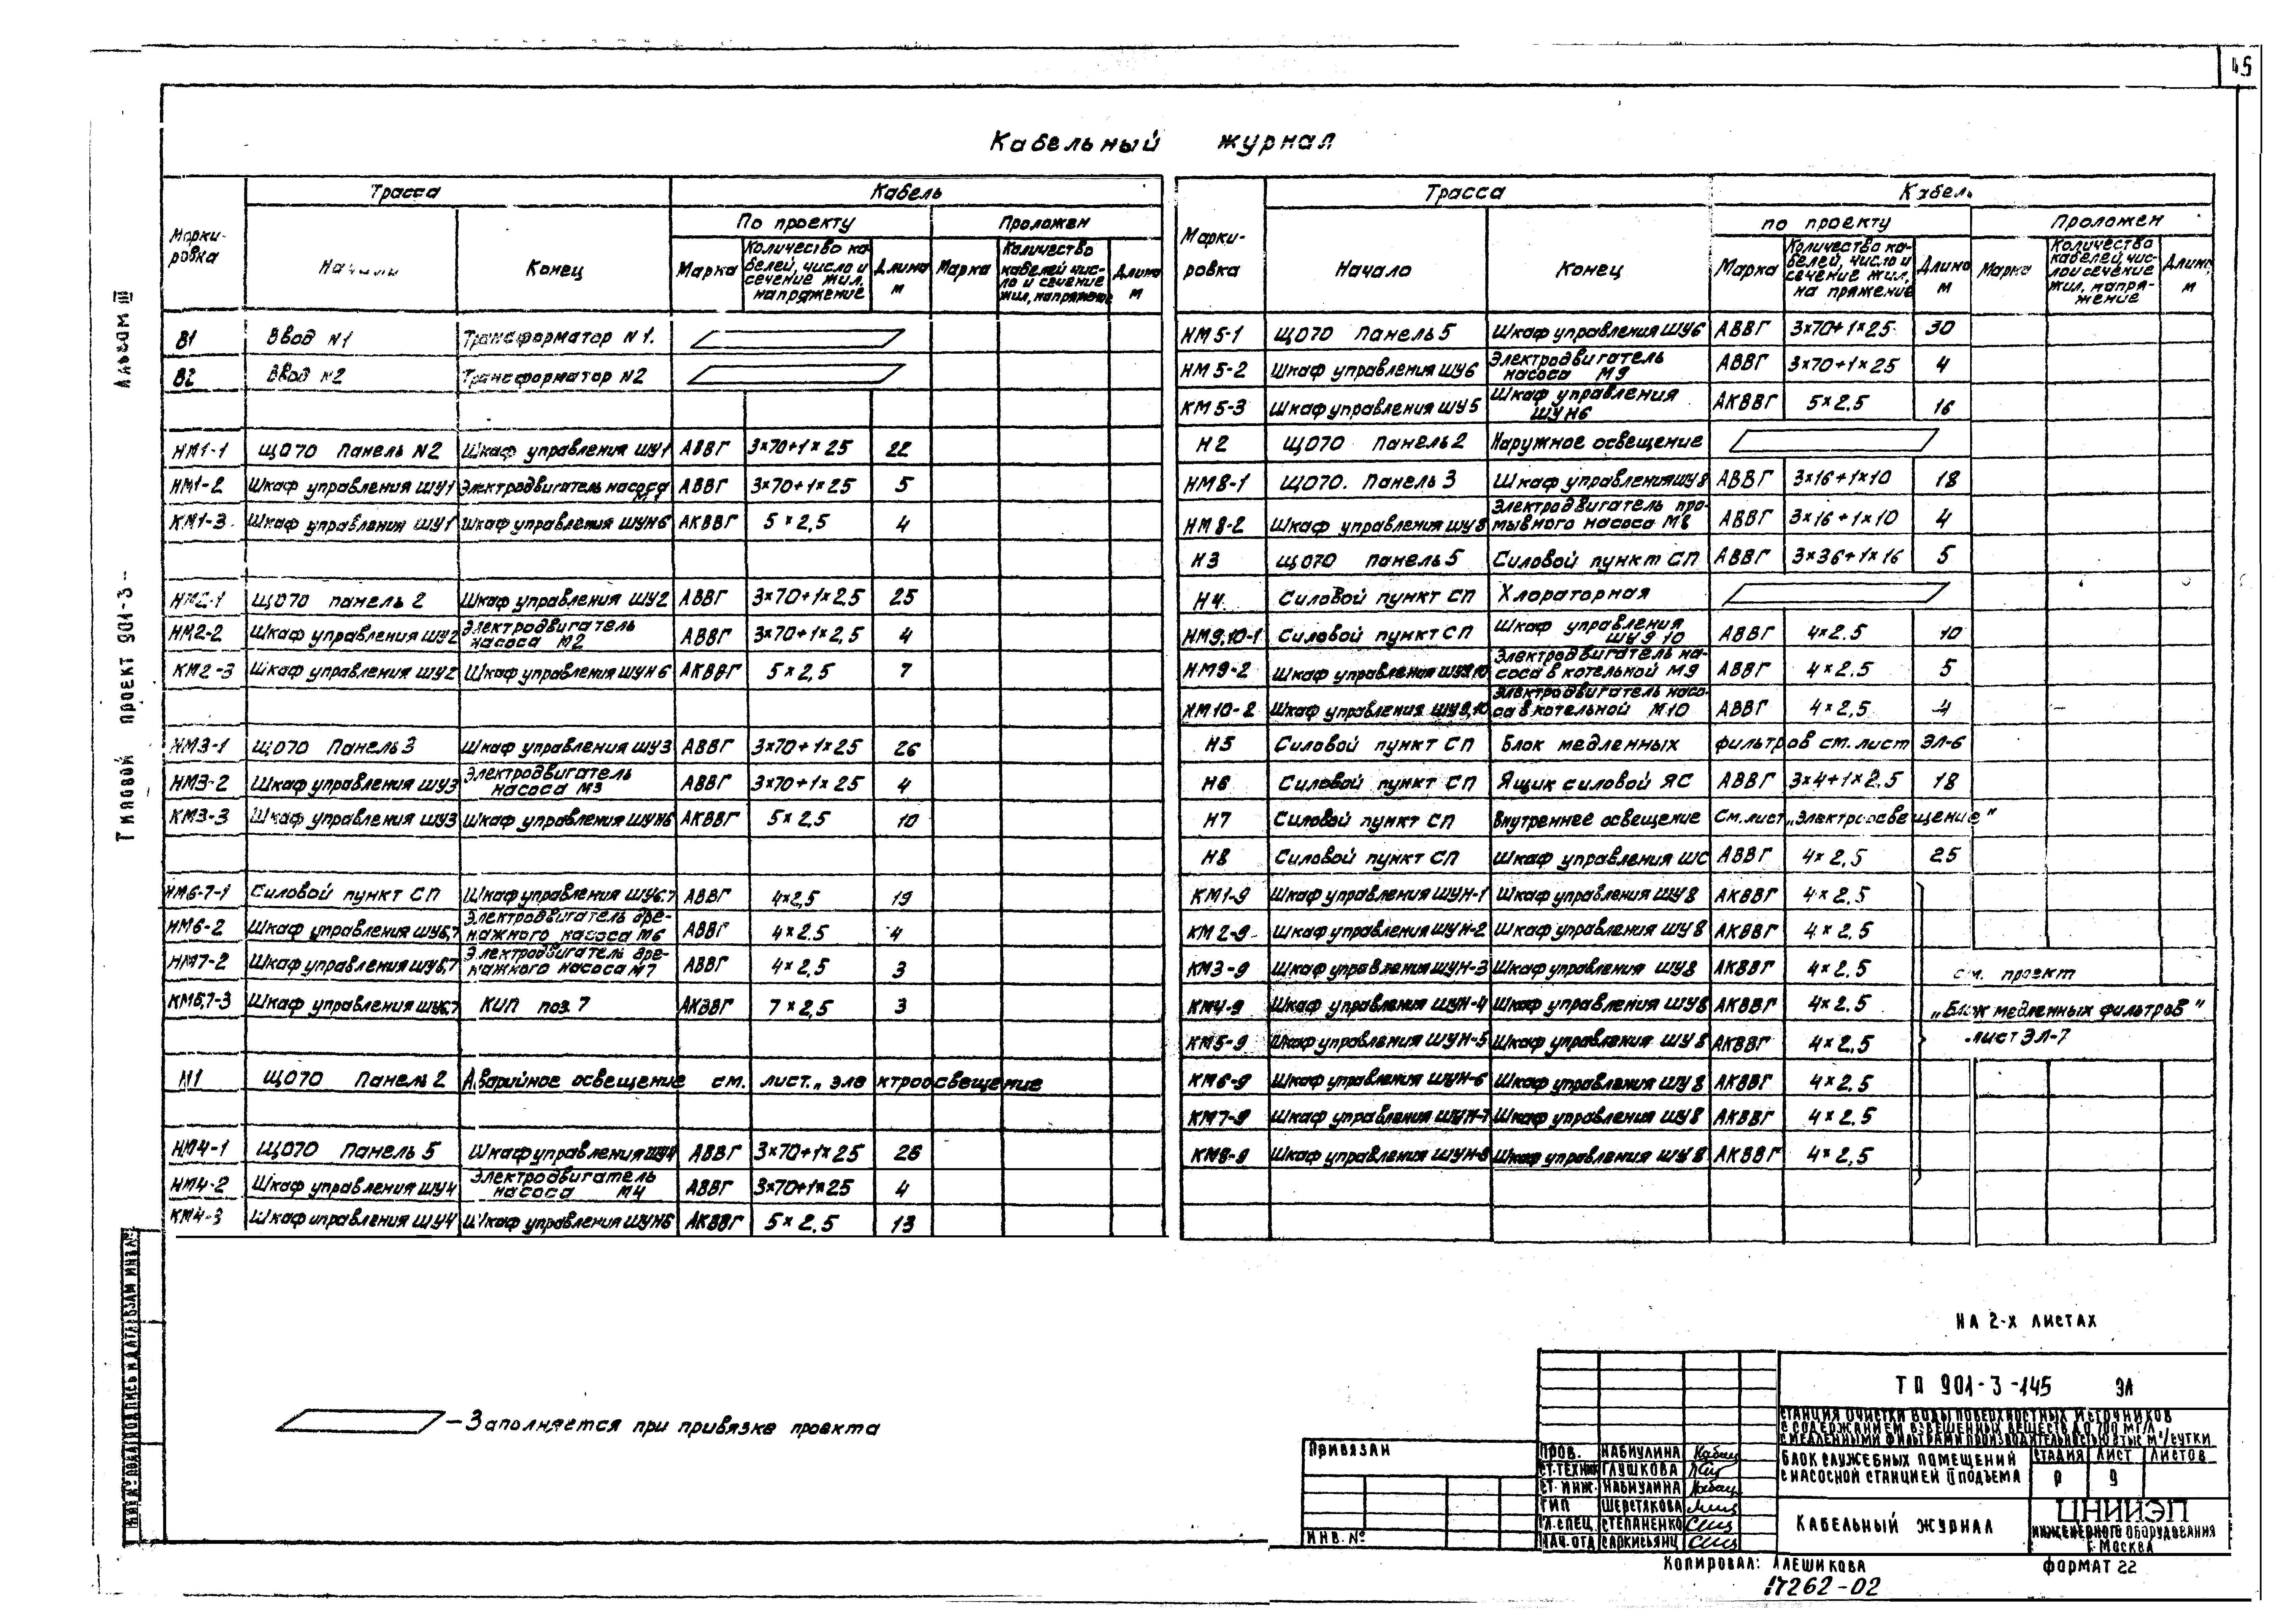 45
Кабельный журнал
Альбом III
Типовой проект 901-3-
Марки-
ровка
Трасса
Кабель
Начало
Конец
По проекту
Проложен
Марка
Количество ка-
белей, число и
сечение жил,
напряжение
Длина
м
Марка
Количество
кабелей чис-
ло и сечение
жил, напряжение
Длина
м
В1 Ввод N1 Трансформатор N1.
В2 Ввод N2 Трансформатор N2
НМ1-1 ЩО70 Панель N2 Шкаф управления ШУ1 АВВГ 3×70+1×25 22
НМ1-2 Шкаф управления ШУ1 Электродвигатель насоса М1 АВВГ 3×70+1×25 5
КМ1-3 Шкаф управления ШУ1 Шкаф управления ШУН6 АКВВГ 5×2,5 4
НМ2-1 ЩО70 панель 2 Шкаф управления ШУ2 АВВГ 3×70+1×2,5 25
НМ2-2 Шкаф управления ШУ2 Электродвигатель насоса М2 АВВГ 3×70+1×2,5 4
КМ2-3 Шкаф управления ШУ2 Шкаф управления ШУН6 АКВВГ 5×2,5 7
НМ3-1 ЩО70 Панель 3 Шкаф управления ШУ3 АВВГ 3×70+1×25 26
НМ3-2 Шкаф управления ШУ3 Электродвигатель насоса М3 АВВГ 3×70+1×25 4
КМ3-3 Шкаф управления ШУ3 Шкаф управления ШУН6 АКВВГ 5×2,5 10
НМ6-7-1 Силовой пункт СП Шкаф управления ШУ6.7 АВВГ 4×2,5 19
НМ6-2 Шкаф управления ШУ6,7 Электродвигатель дре-
нажного насоса М6 АВВГ 4×2.5 4
НМ7-2 Шкаф управления ШУ6,7 Электродвигатель дре-
нажного насоса М7 АВВГ 4×2,5 3
КМ6,7-3 Шкаф управления ШУ6.7 КИП поз. 7 АКВВГ 7×2,5 3
Н1 ЩО70 Панель 2 Аварийное освещение см. лист „электроосвещение
НМ4-1 ЩО70 Панель 5 Шкаф управления ШУ4 АВВГ 3×70+1×25 26
НМ4-2 Шкаф управления ШУ4 Электродвигатель
насоса М4 АВВГ 3×70+1×25 4
КМ4-3 Шкаф управления ШУ4 Шкаф управления ШУН6 АКВВГ 5×2,5 13
Марки-
ровка
Трасса
Кабель
Начало
Конец
по проекту
Проложен
Марка
Количество ка-
белей, число и
сечение жил,
на пряжение
Длина
м
Марка
Количество
кабелей, чис-
ло и сечение
жил, напря-
жение
Длина,
м
НМ5-1 ЩО70 Панель 5 Шкаф управления ШУ6 АВВГ 3×70+1×25 30
НМ5-2 Шкаф управления ШУ6 Электродвигатель
насоса М9 АВВГ 3×70+1×25 4
КМ5-3 Шкаф управления ШУ5 Шкаф управления
ШУН6 АКВВГ 5×2.5 16
Н2 ЩО70 Панель 2 Наружное освещение
НМ8-1 ЩО70. Панель 3 Шкаф управления ШУ8 АВВГ 3×16+1×10 18
НМ8-2 Шкаф управления ШУ8 Электродвигатель про-
мывного насоса М8 АВВГ 3×16+1×10 4
Н3 ЩО70 панель 5 Силовой пункт СП АВВГ 3×36+1×16 5
Н4 Силовой пункт СП Хлораторная
НМ9,10-1 Силовой пункт СП Шкаф управления
ШУ9 10 АВВГ 4×2.5 10
НМ9-2 Шкаф управления ШУ9,10 Электродвигатель на-
соса в котельной М9 АВВГ 4×2.5 5
НМ10-2 Шкаф управления ШУ9,10 Электродвигатель насо-
са в котельной М10 АВВГ 4×2,5 4
Н5 Силовой пункт СП Блок медленных фильтров см. лист ЭЛ-6
Н6 Силовой пункт СП Ящик силовой ЯС АВВГ 3×4+1×2.5 18
Н7 Силовой пункт СП Внутреннее освещение См. лист „Электроосвещение"
Н8 Силовой пункт СП Шкаф управления ШС АВВГ 4×2,5 25
КМ1-9 Шкаф управления ШУН-1 Шкаф управления ШУ8 АКВВГ 4×2.5
КМ2-9 Шкаф управления ШУН-2 Шкаф управления ШУ8 АКВВГ 4×2.5
КМ3-9 Шкаф управления ШУН-3 Шкаф управления ШУ8 АКВВГ 4×2.5
КМ4-9 Шкаф управления ШУН-4 Шкаф управления ШУ8 АКВВГ 4×2.5
КМ5-9 Шкаф управления ШУН-5 Шкаф управления ШУ8 АКВВГ 4×2.5
КМ6-9 Шкаф управления ШУН-6 Шкаф управления ШУ8 АКВВГ 4×2.5
КМ7-9 Шкаф управления ШУН-7 Шкаф управления ШУ8 АКВВГ 4×2.5
КМ8-9 Шкаф управления ШУН-8 Шкаф управления ШУ8 АКВВГ 4×2,5
см. проект
„Блок медленных фильтров"
лист ЭЛ-7
— Заполняется при привязке проекта
На 2-х листах
ТП 901-3-145 ЭЛ
Станция очистки воды поверхностных источников
с содержанием взвешенных веществ до 700 мг/л
с медленными фильтрами производительностью тыс м³/сутки
Блок служебных помещений
с насосной станцией II подъема
Стадия Лист Листов
Р 9
Кабельный журнал
ЦНИИЭП
инженерного оборудования
г. Москва
Привязан
Инв. №
Пров. Набиулина
Ст. техник Глушкова
Ст. инж. Набиулина
ГИП Шерстякова
Гл. спец. Степаненко
Нач. отд Саркисьянц
Копировал: Алешикова
Формат 22
17262-02
Инв № подл Подпись и дата Взам инв №